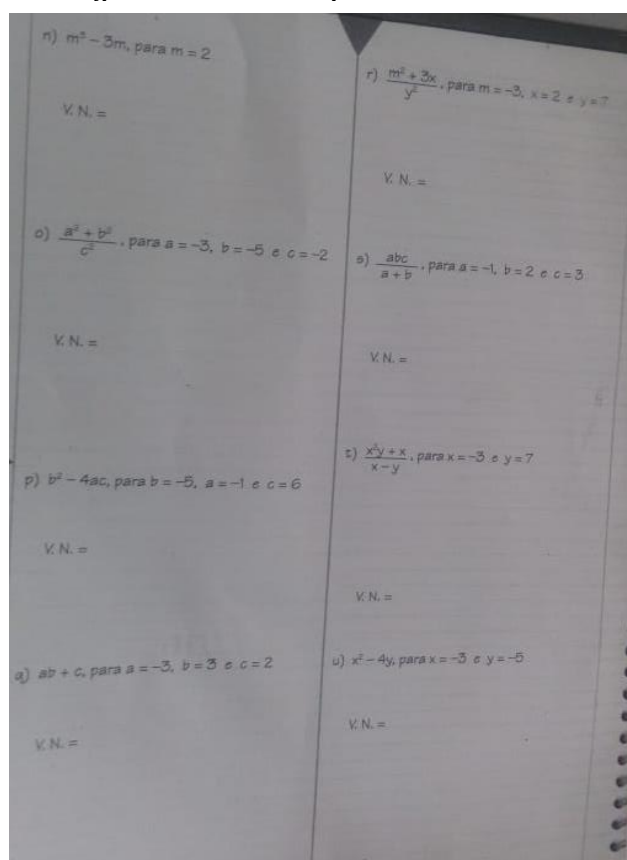 n) m³ – 3m, para m = 2
V. N. =
o) a² + b² / c² , para a = –3, b = –5 e c = –2
V. N. =
p) b² – 4ac, para b = –5, a = –1 e c = 6
V. N. =
q) ab + c, para a = –3, b = 3 e c = 2
V. N. =
r) m² + 3x / y² , para m = –3, x = 2 e y = 7
V. N. =
s) abc / a + b , para a = –1, b = 2 e c = 3
V. N. =
t) x²y + x / x – y , para x = –3 e y = 7
V. N. =
u) x² – 4y, para x = –3 e y = –5
V. N. =